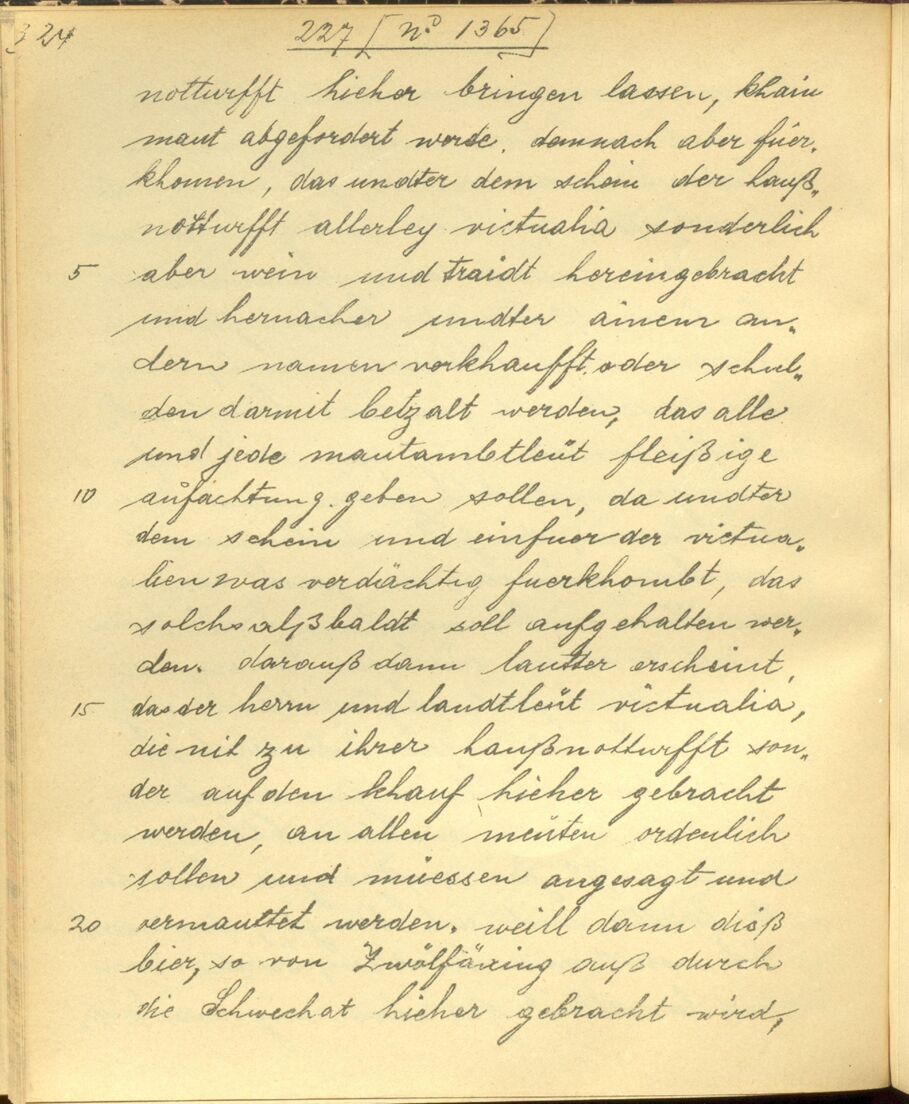 324
227 [nº 1365]
notturfft hieher bringen lassen, khain
maut abgefordert werde. dannach aber füer„
khomen, das undter dem schein der hauß„
notturfft allerley victualia sonderlich
5 aber wein und traidt hereingebracht
und hernacher undter ainem an„
dern namen verkhaufft oder schul„
den darmit betzalt werden, das alle
und jede mautambtleüt fleißige
10 aufachtung geben sollen, da undter
dem schein und einfuer der victua„
lien was verdächtig fuerkhombt, das
solchs alßbaldt soll aufgehalten wer„
den. darauß dann lautter erscheint,
15 das der herrn und landtleüt victualia,
die nit zu ihrer haußnotturfft son„
der auf den khauf hieher gebracht
werden, an allen meüten ordenlich
sollen und müessen angesagt und
20 vermauttet werden. weill dann diß
bier, so von Zwölfäxing auß durch
die Schwechat hieher gebracht wird,